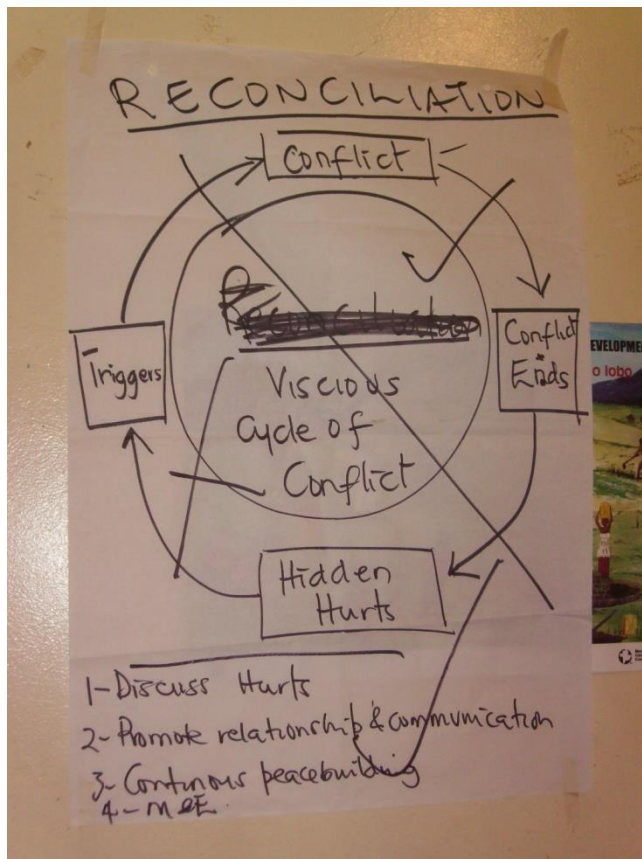 RECONCILIATION
Conflict
Conflict
Ends
Triggers
Viscious
Cycle of
Conflict
Hidden
Hurts
1-Discuss Hurts
2-Promote relationship & communication
3-Continous peacebuilding
4-M&E.
DEVELOPME
o lobo